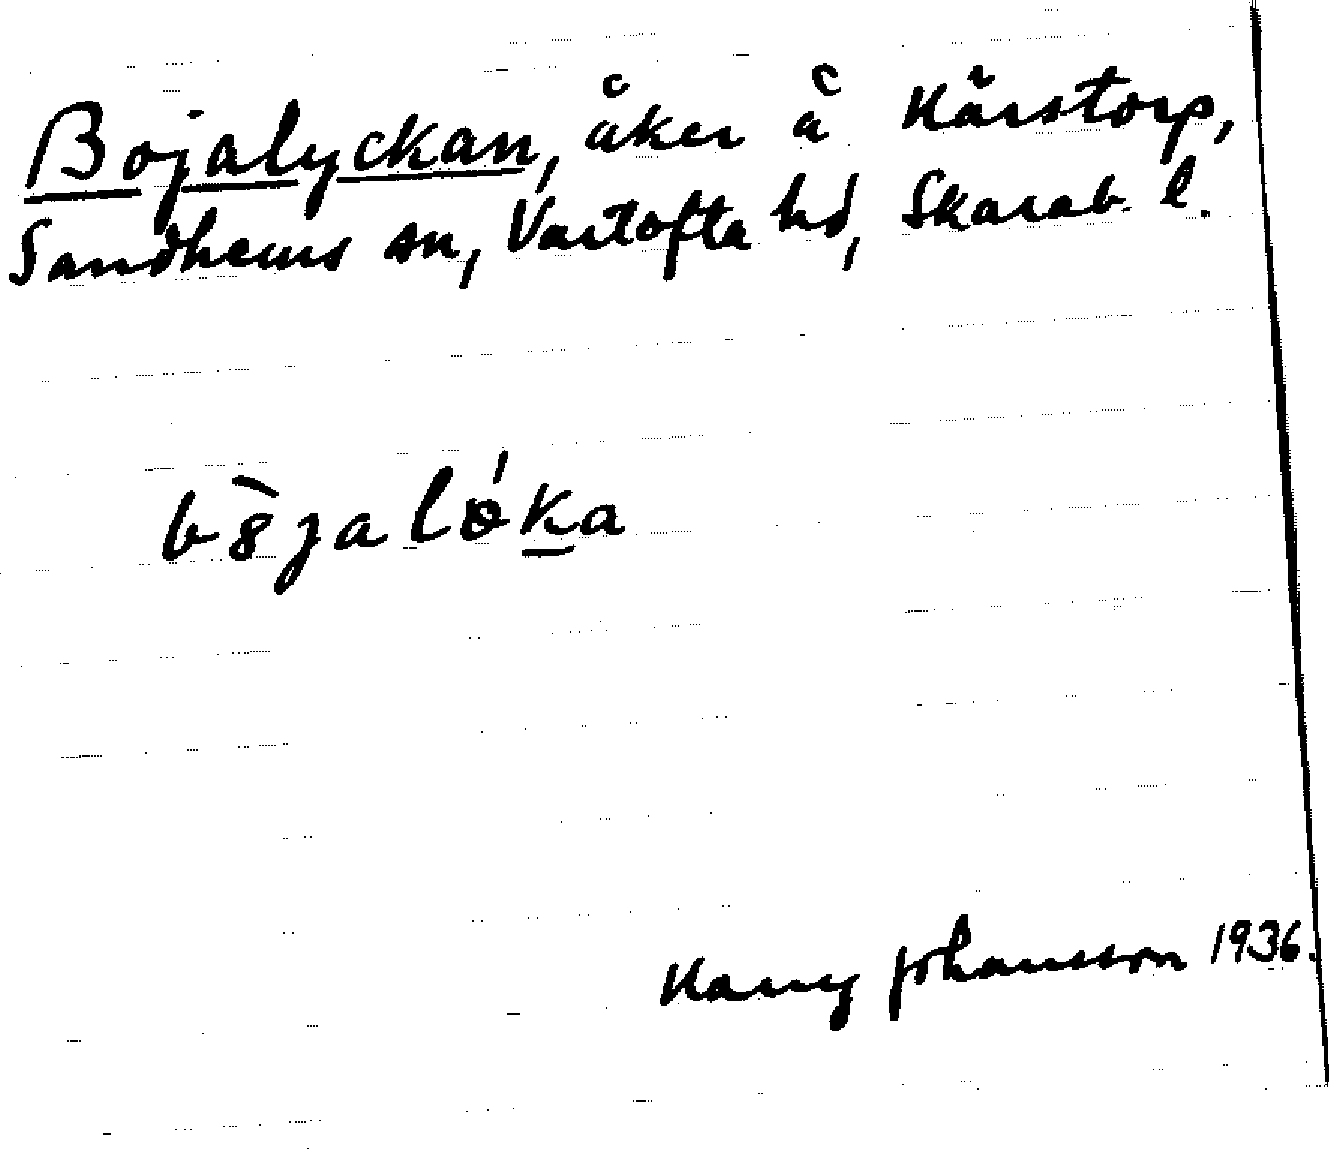 Bojalyckan, åker å
Sandhems sn, Vartofta hd, Skarab. l.
bȣ̀jalǿk̲a
Harry Johansson 1936.